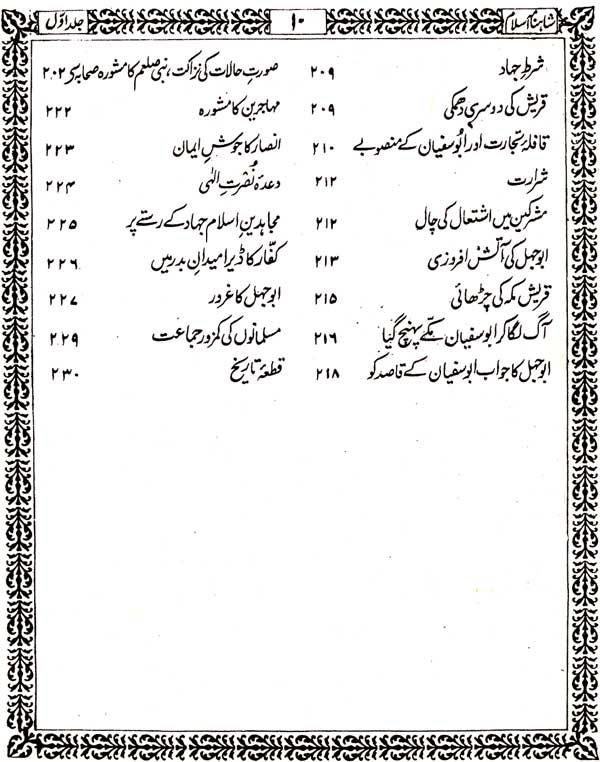 شاہنامۂ اسلام ۱۰ جلد اوّل
شرطِ جہاد ۲۰۹
قریش کی دوسری دھمکی ۲۰۹
قافلۂ تجارت اور ابوسفیان کے منصوبے ۲۱۰
شرارت ۲۱۲
مشرکین میں اشتعال کی چال ۲۱۲
ابوجہل کی آتش افروزی ۲۱۳
قریشِ مکہ کی چڑھائی ۲۱۵
آگ لگا کر ابوسفیان مکے پہنچ گیا ۲۱۶
ابوجہل کا جواب ابوسفیان کے قاصد کو ۲۱۸
صورتِ حالات کی نزاکت، نبی صلعم کا مشورہ صحابہ سے ۲۰۲
مہاجرین کا مشورہ ۲۲۲
انصار کا جوشِ ایمان ۲۲۳
وعدۂ نُصرتِ الٰہی ۲۲۴
مجاہدینِ اسلام جہاد کے رستے پر ۲۲۵
کفّار کا ڈیرا میدانِ بدر میں ۲۲۶
ابوجہل کا غرور ۲۲۷
مسلمانوں کی کمزور جماعت ۲۲۹
قطعۂ تاریخ ۲۳۰